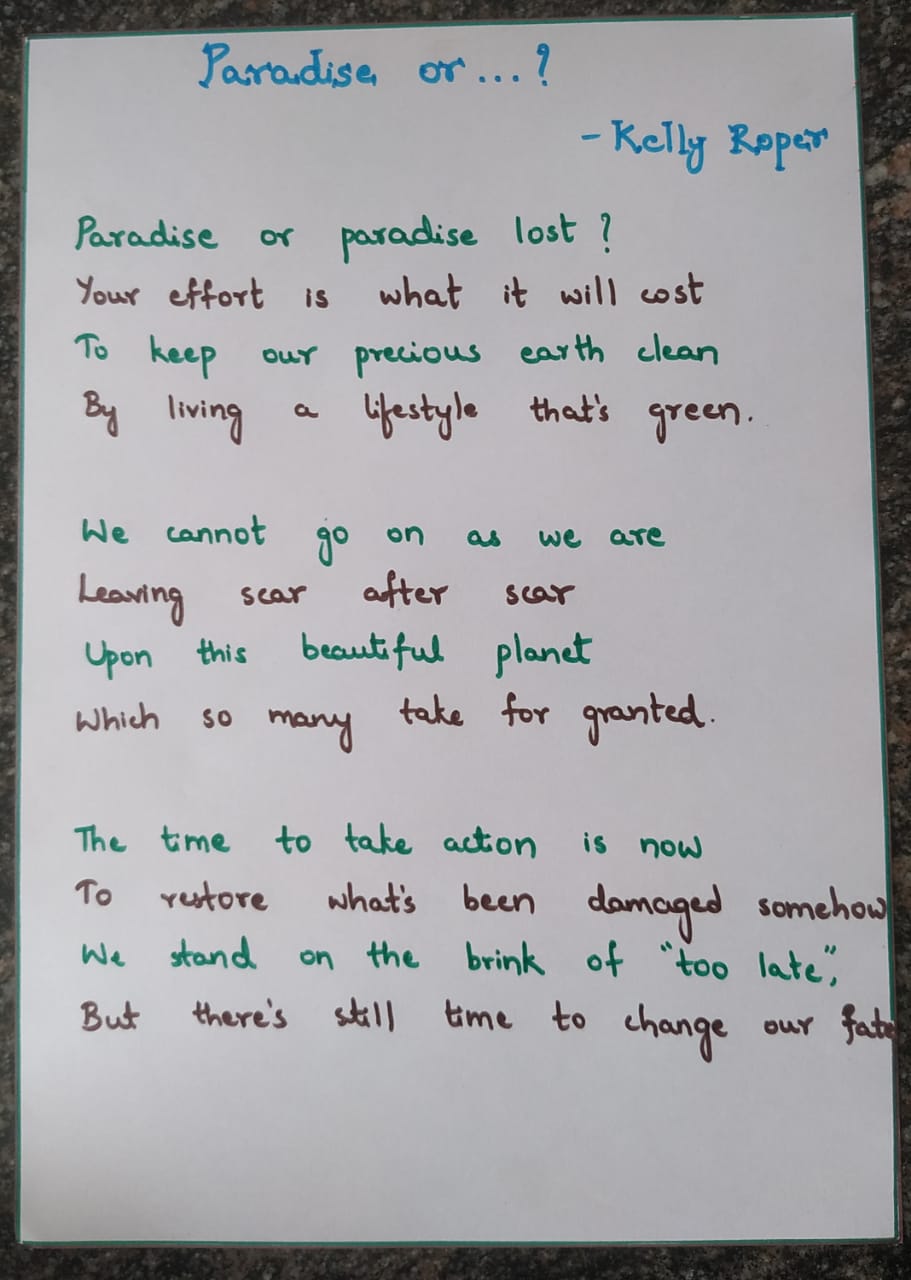 Paradise or...?
-Kelly Roper
Paradise or paradise lost?
Your effort is what it will cost
To keep our precious earth clean
By living a lifestyle that's green.
We cannot go on as we are
Leaving scar after scar
Upon this beautiful planet
Which so many take for granted.
The time to take action is now
To restore what's been damaged somehow
We stand on the brink of "too late",
But there's still time to change our fate